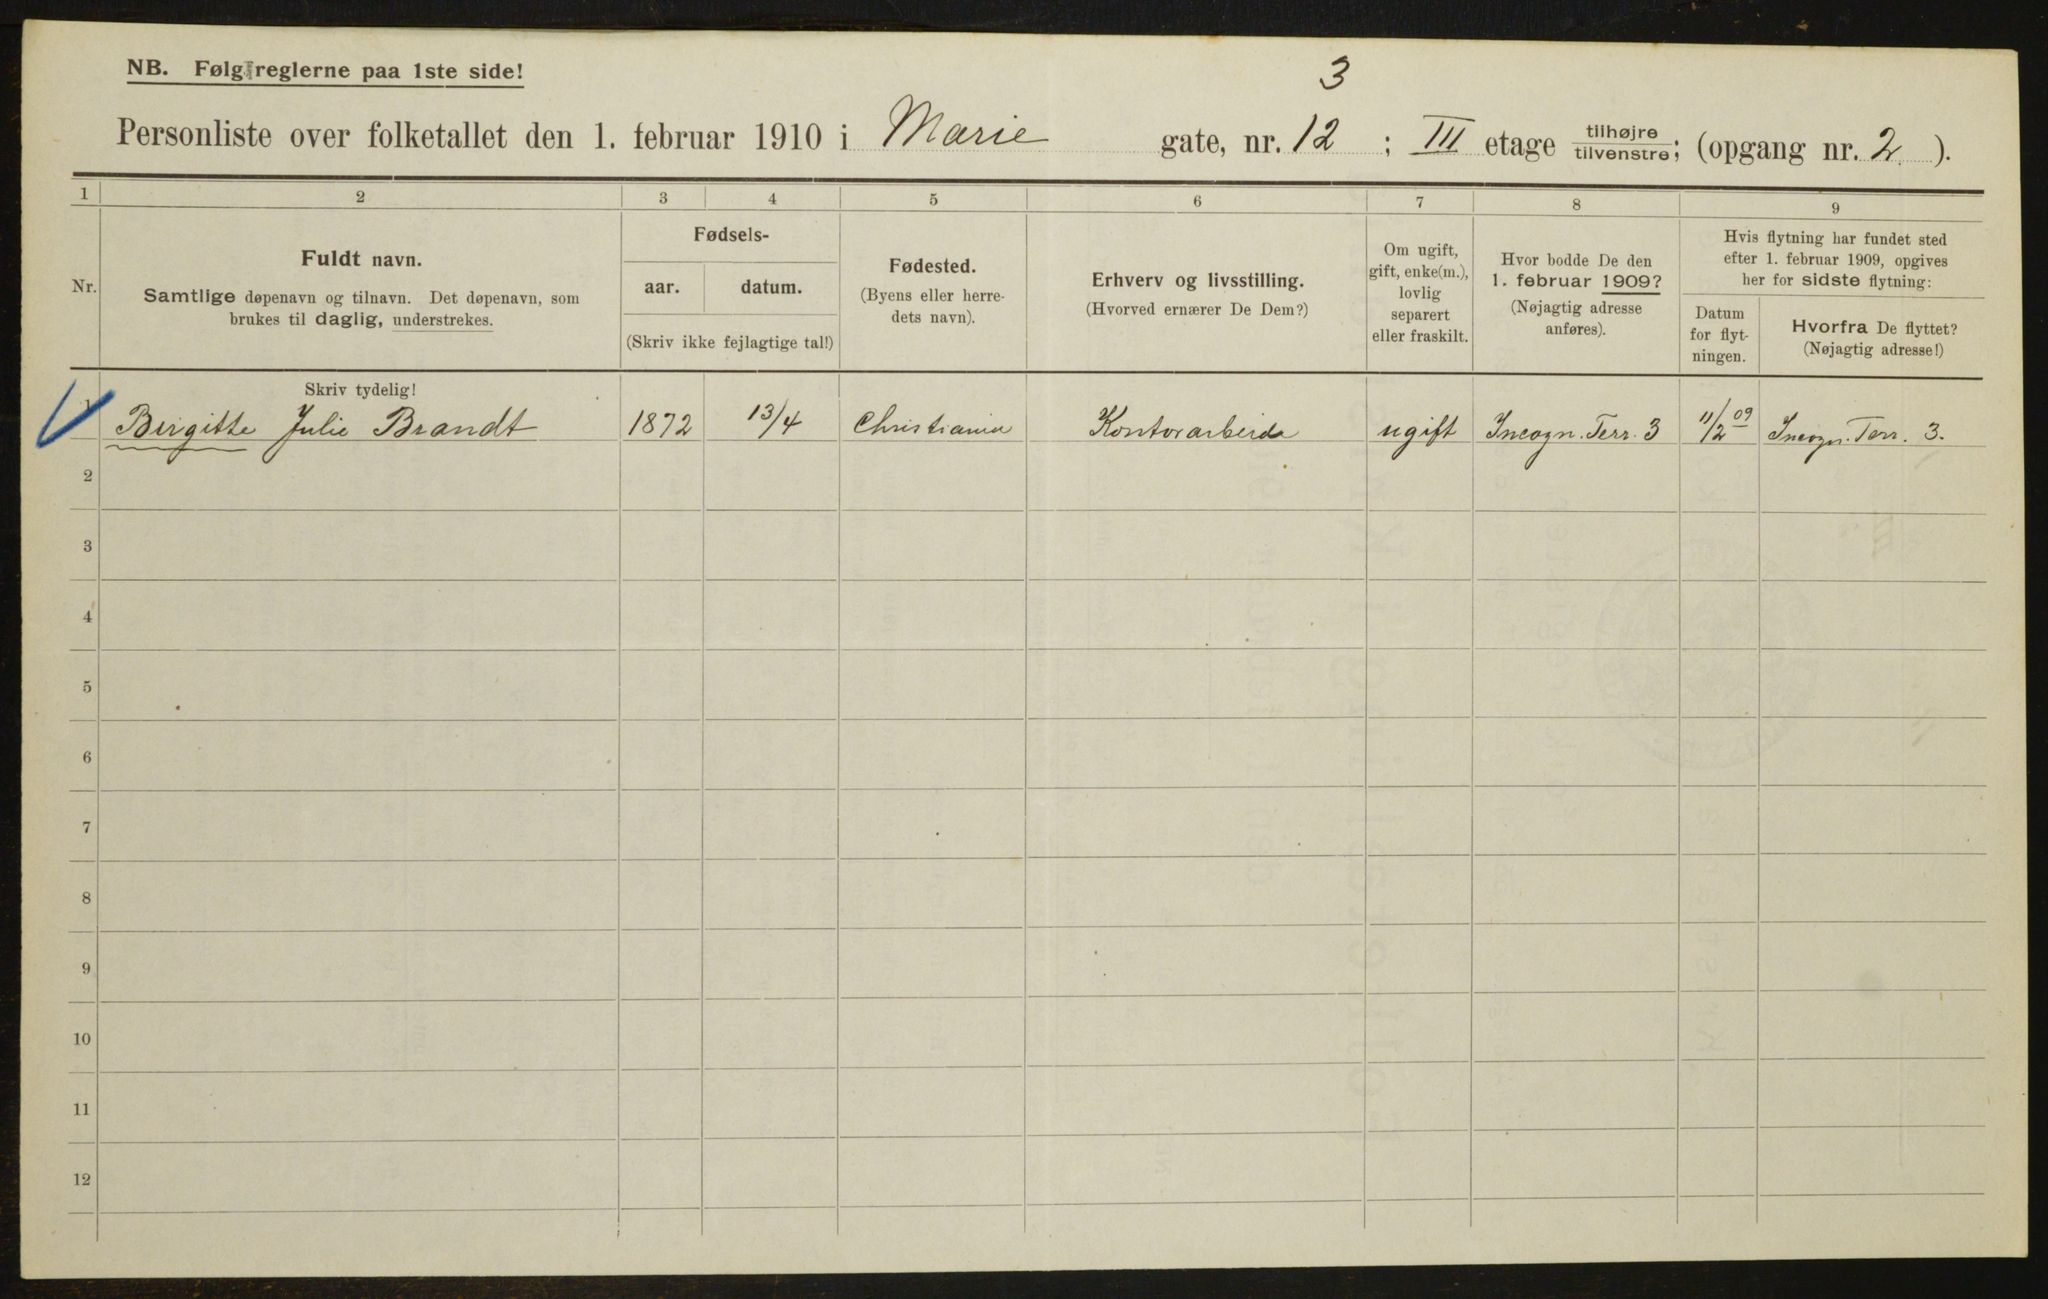 NB. Følg reglerne paa 1ste side!
3
Personliste over folketallet den 1. februar 1910 i Marie gate, nr. 12 ; III etage tilhøjre/tilvenstre; (opgang nr. 2 ).
1 2 3 4 5 6 7 8 9
Nr.
Fuldt navn.
Samtlige døpenavn og tilnavn. Det døpenavn, som
brukes til daglig, understrekes.
Fødsels-
aar. datum.
(Skriv ikke fejlagtige tal!)
Fødested.
(Byens eller herre-
dets navn).
Erhverv og livsstilling.
(Hvorved ernærer De Dem?)
Om ugift,
gift, enke(m.),
lovlig
separert
eller fraskilt.
Hvor bodde De den
1. februar 1909?
(Nøjagtig adresse
anføres).
Hvis flytning har fundet sted
efter 1. februar 1909, opgives
her for sidste flytning:
Datum
for flyt-
ningen.
Hvorfra De flyttet?
(Nøjagtig adresse!)
Skriv tydelig!
1 Birgitte Julie Brandt 1872 13/4 Christiania Kontorarbeide ugift Incogn. Terr. 3 11/2 09 Incogn. Terr. 3.
2
3
4
5
6
7
8
9
10
11
12